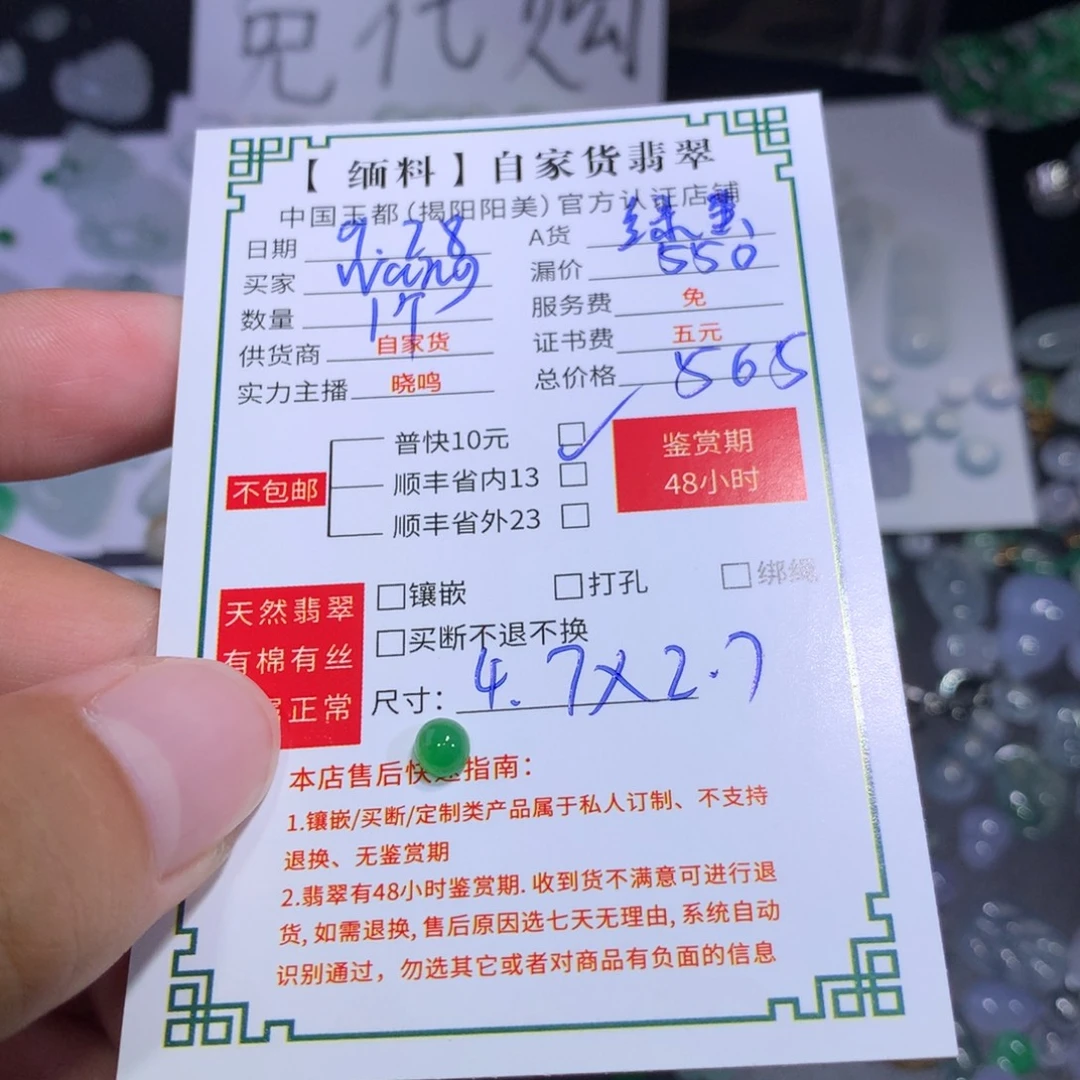 免代购
【 缅料 】自家货翡翠
中国玉都(揭阳阳美)官方认证店铺
日期 9.28 A货
买家 Wang 漏价 550
数量 1个 服务费 免
供货商 自家货 证书费 五元
实力主播 晓鸣 总价格 565
普快10元
顺丰省内13
顺丰省外23
不包邮
鉴赏期
48小时
天然翡翠
有棉有丝
正常
镶嵌 打孔 绑绳
买断不退不换
尺寸: 4.7×2.7
本店售后快速指南:
1.镶嵌/买断/定制类产品属于私人订制、不支持
退换、无鉴赏期
2.翡翠有48小时鉴赏期.收到货不满意可进行退
货,如需退换,售后原因选七天无理由,系统自动
识别通过，勿选其它或者对商品有负面的信息